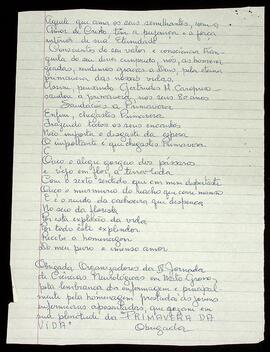 Aquele que ama os seus semelhantes, com o
Amor de Cristo tira a pujança e a força
interior de sua Eternidade
Conscientes do seu valor e consciência tran-
quila do seu dever cumprido, nós, as homena-
geadas, rendemos graças a Deus, pela eterna
primavera das nossas vidas.
Assim pensando Gertrudes M.
saudou a primavera, nos seus 80 anos
Saudação à Primavera
Enfim, chegastes Primavera
Trazendo todos os seus encantos
Não importa o desgaste da espera
O importante é que chegastes Primavera
Ouço o alegre gorgeio dos pássaros
e vejo em flor a terra toda
Com o sexto sentido que em mim desperta
Ouço o murmúrio do riacho que corre manso
E é o ruído da cachoeira que despenca
No seio da floresta
Por esta explosão da vida
Por todo este esplendor
Recebe a homenagem
Do meu puro e imenso amor
Obrigada, Organizadores da Jornada
de Ciências em Mato Grosso,
pela lembrança da enfermagem e principal-
mente pela homenagem prestada às
enfermeiras aposentadas, que gozam em
sua plenitude da "PRIMAVERA DA
VIDA"
Obrigada